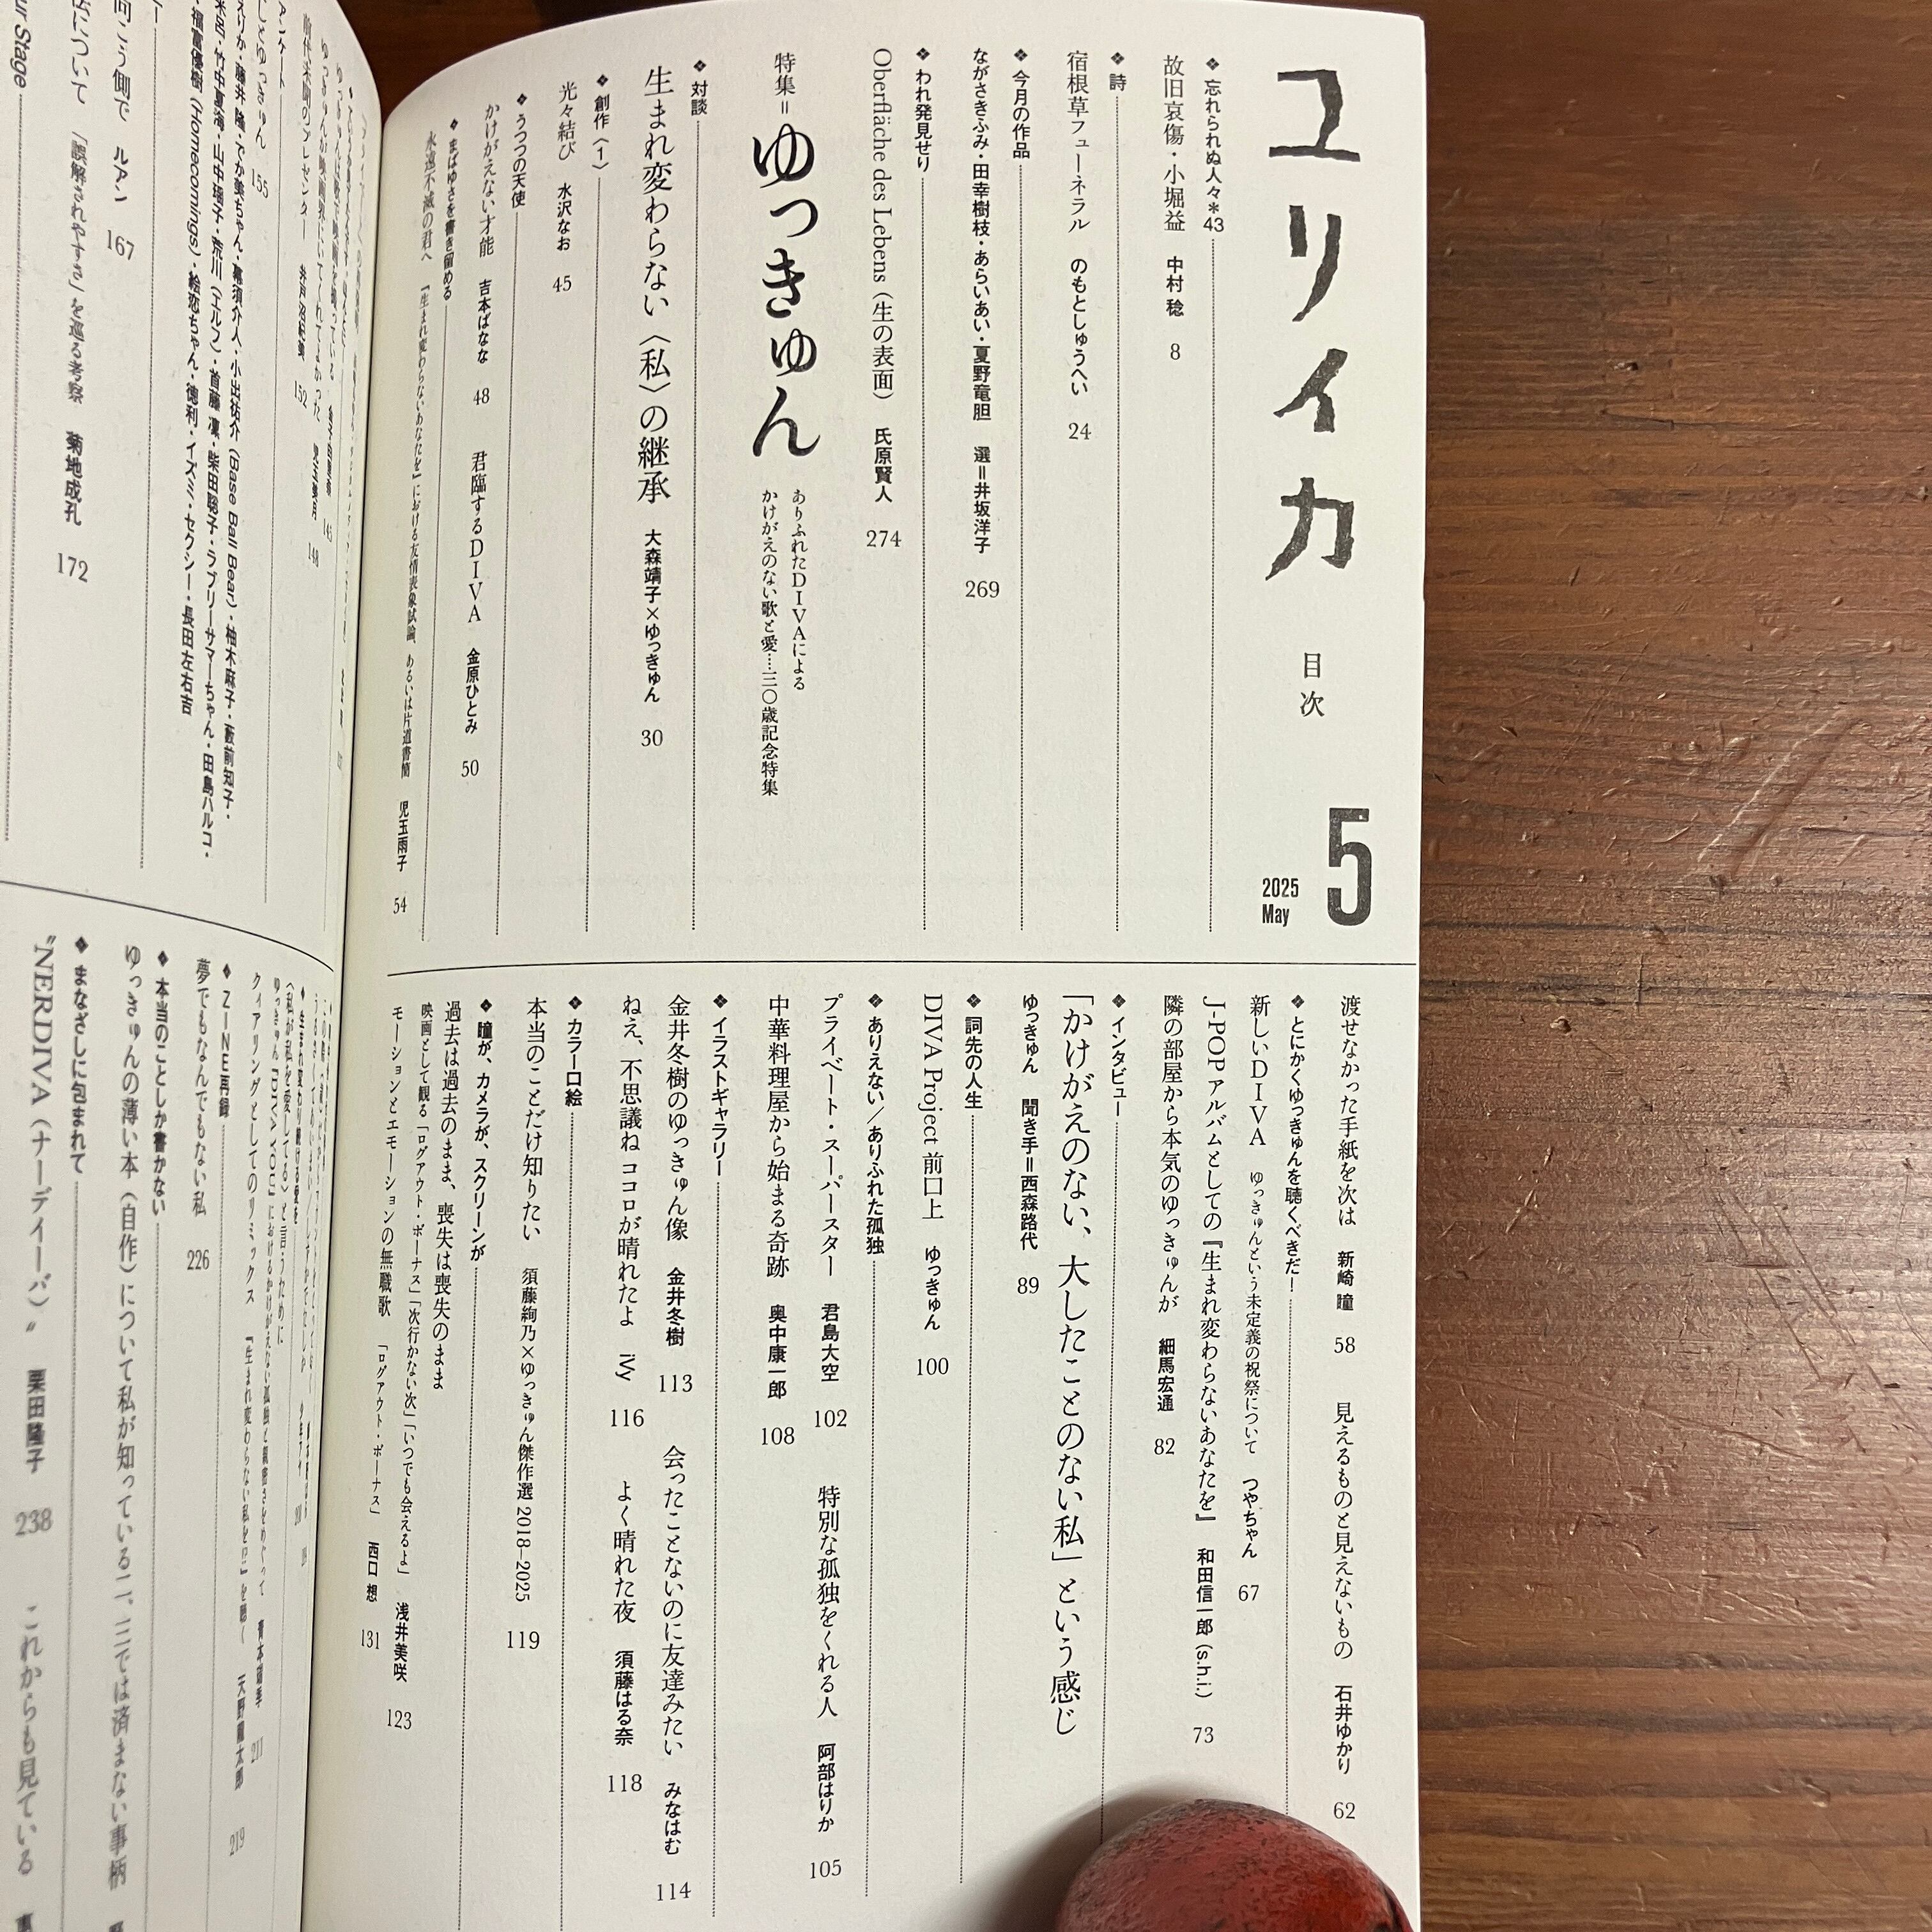 ユリイカ 目次
5
2025
May
❖忘れられぬ人々＊43
故旧哀傷・小堀益 中村 稔 8
❖詩
宿根草フューネラル のもとしゅうへい 24
❖今月の作品
ながさきふみ・田幸樹枝・あらいあい・夏野竜胆 選＝井坂洋子 269
❖われ発見せり
Oberfläche des Lebens（生の表面） 氏原賢人 274
特集＝ゆっきゅん
ありふれたDIVAによる
かけがえのない歌と愛…三〇歳記念特集
❖対談
生まれ変わらない〈私〉の継承 大森靖子×ゆっきゅん 30
❖創作〈1〉
光々結び 水沢なお 45
❖うつつの天使
かけがえない才能 吉本ばなな 48 君臨するDIVA 金原ひとみ 50
❖まばゆさを書き留める
永遠不滅の君へ 『生まれ変わらないあなたを』における友情表象試論、あるいは片道書簡 児玉雨子 54
渡せなかった手紙を次は 新崎 瞳 58 見えるものと見えないもの 石井ゆかり 62
❖とにかくゆっきゅんを聴くべきだ！
新しいDIVA ゆっきゅんという未定義の祝祭について つやちゃん 67
J-POPアルバムとしての『生まれ変わらないあなたを』 和田信一郎（s.h.i.） 73
隣の部屋から本気のゆっきゅんが 細馬宏通 82
❖インタビュー
「かけがえのない、大したことのない私」という感じ
ゆっきゅん 聞き手＝西森路代 89
❖詞先の人生
DIVA Project 前口上 ゆっきゅん 100
❖ありえない／ありふれた孤独
プライベート・スーパースター 君島大空 102 特別な孤独をくれる人 阿部はりか 105
中華料理屋から始まる奇跡 奥中康一郎 108
❖イラストギャラリー
金井冬樹のゆっきゅん像 金井冬樹 113 会ったことないのに友達みたい みなはむ 114
ねえ、不思議ね ココロが晴れたよ ivy 116 よく晴れた夜 須藤はる奈 118
❖カラー口絵
本当のことだけ知りたい 須藤絢乃×ゆっきゅん傑作選 2018–2025 119
❖瞳が、カメラが、スクリーンが
過去は過去のまま、喪失は喪失のまま
映画として観る「ログアウト・ボーナス」「次行かない次」「いつでも会えるよ」 浅井美咲 123
モーションとエモーションの無職歌 「ログアウト・ボーナス」 西口 想 131
152
155
・藤井 隆・でか美ちゃん・幕須介人・小出祐介（Base Ball Bear）・柚木麻子・薮前知子・
・竹中夏海・山中瑶子・荒川（エルフ）・首藤 凜・柴田聡子・ラブリーサマーちゃん・田島ハルコ・
・福富優樹（Homecomings）・絵恋ちゃん・徳利・イズミ・セクシー・長田左右吉
向こう側で ルアン 167
について 「誤解されやすさ」を巡る考察 菊地成孔 172
Stage
〈私が私を愛してる〉と言うために
クィアリングとしてのリミックス
219
❖ZINE再録
夢でもなんでもない私 226
❖本当のことしか書かない
ゆっきゅんの薄い本（自作）について私が知っている二、三では済まない事柄
❖まなざしに包まれて
“NERDIVA（ナーディーバ）” 栗田隆子 238 これからも見ている